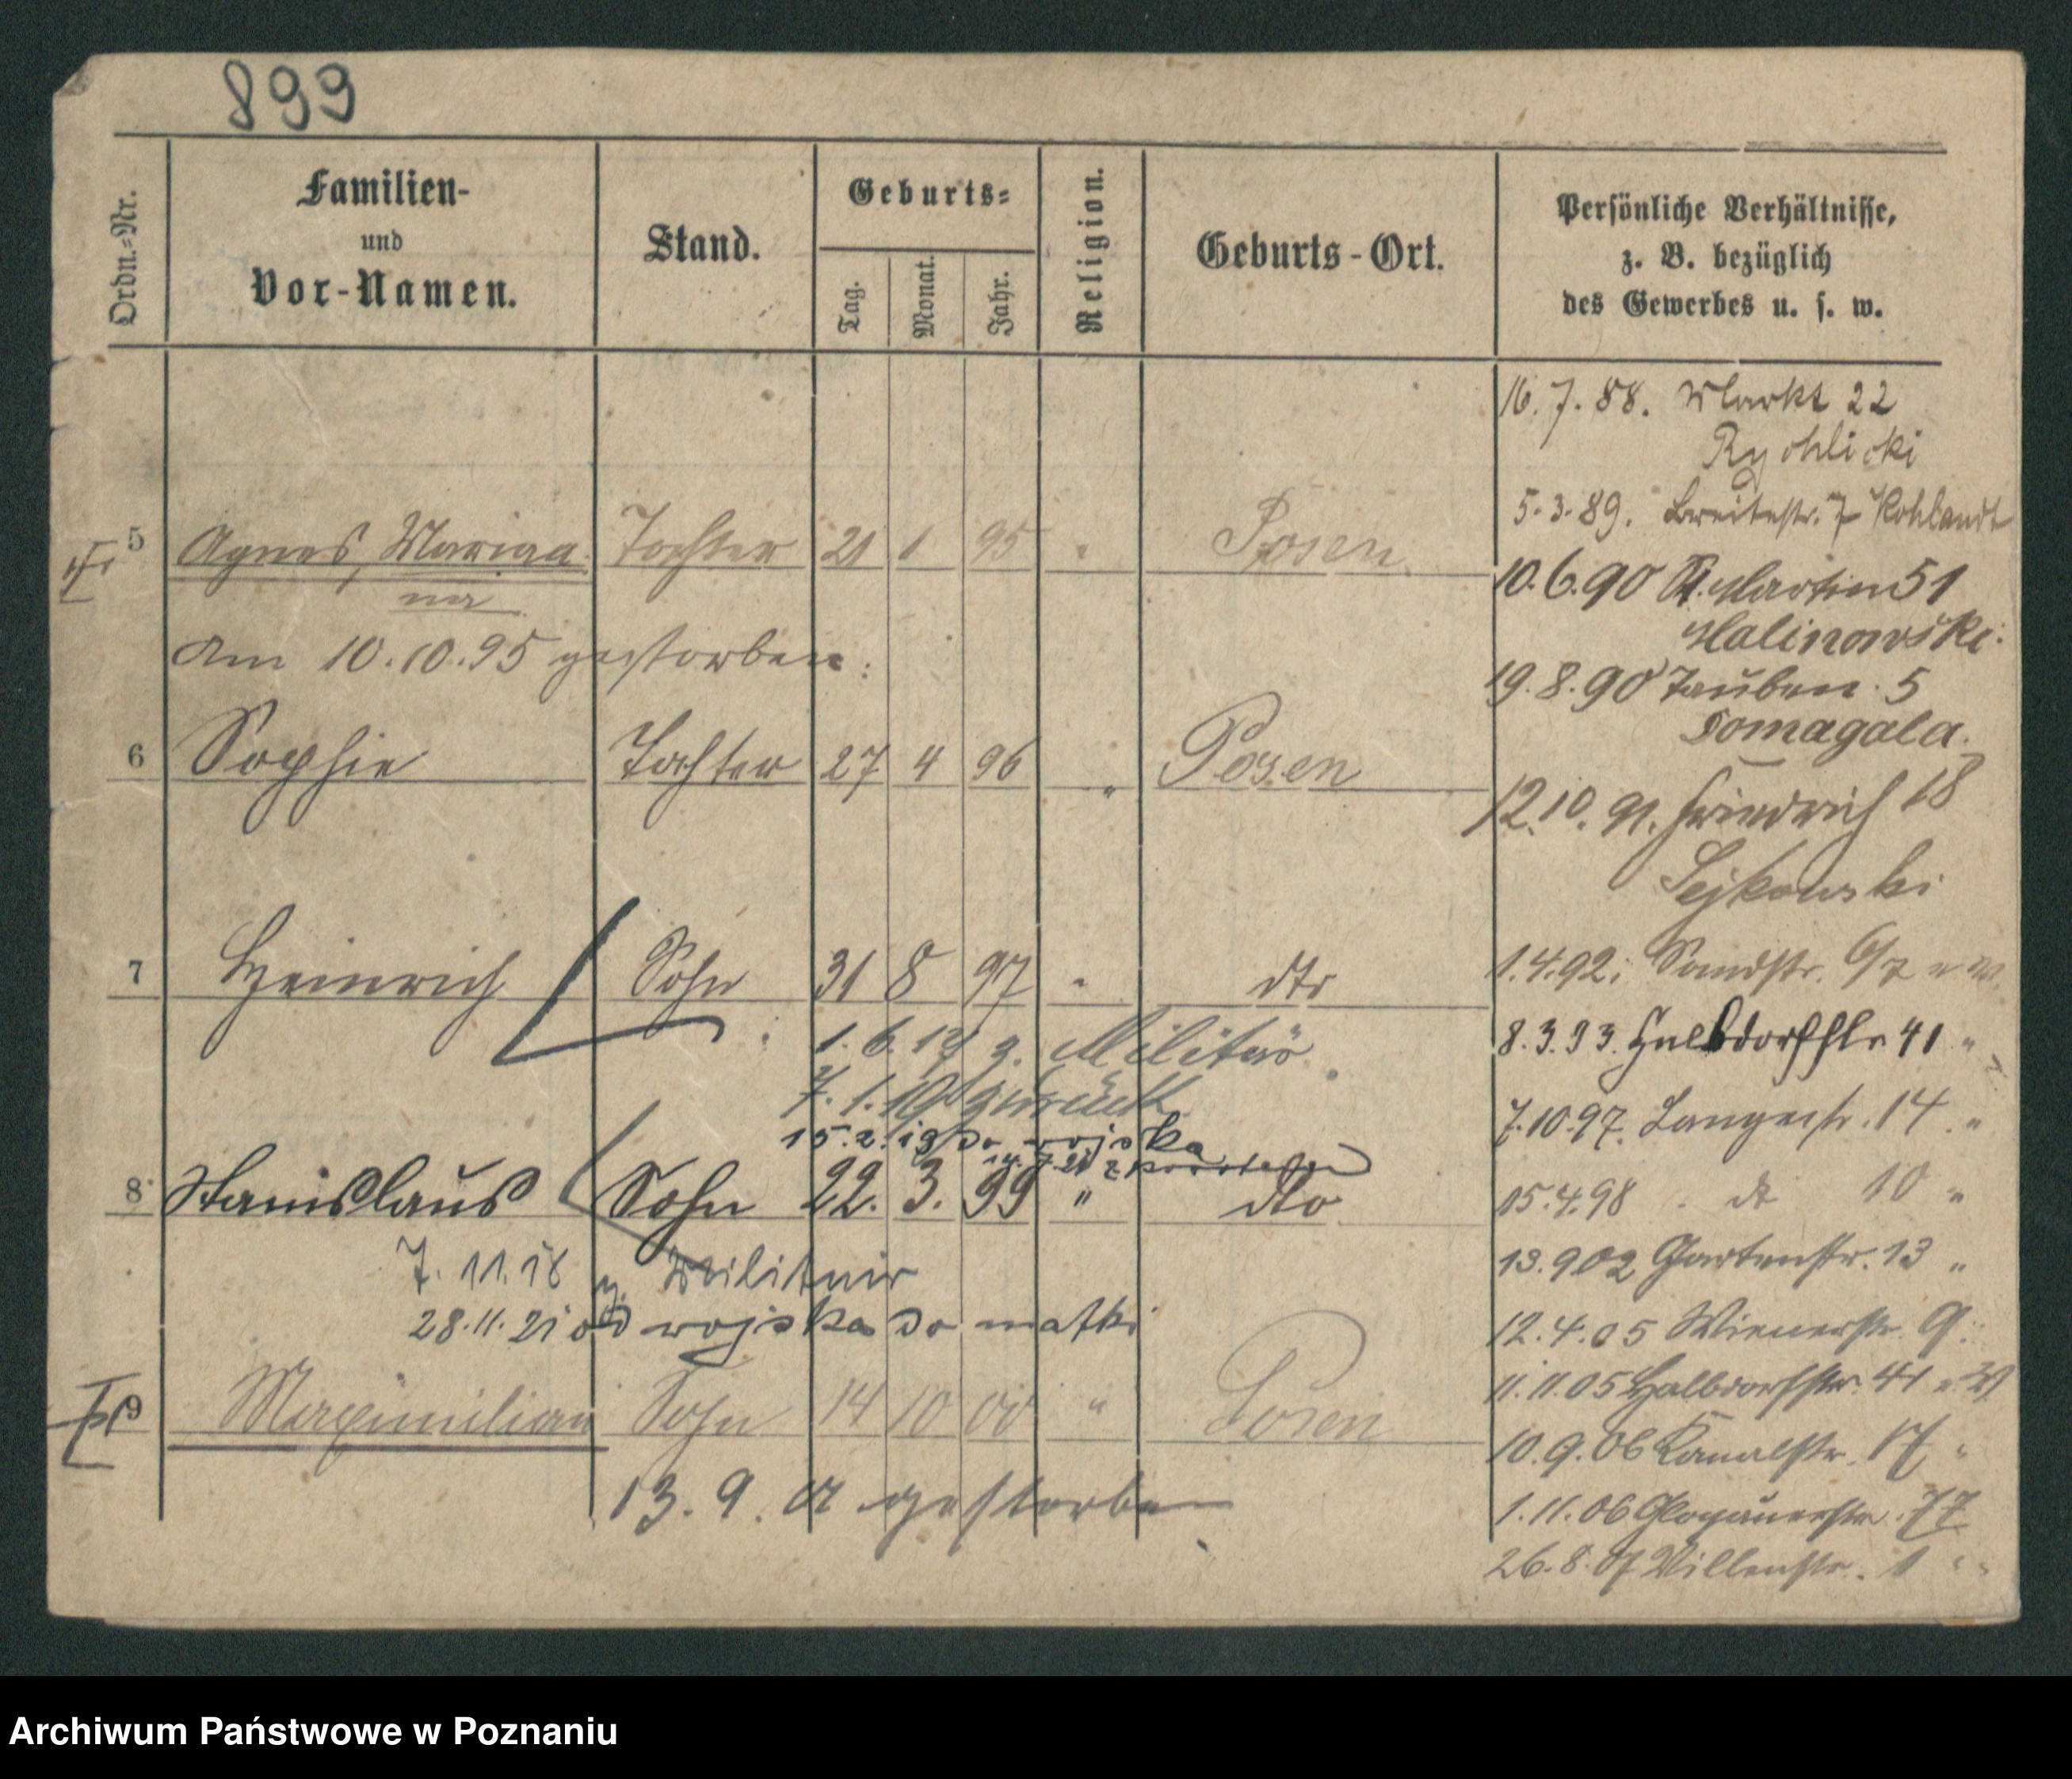 899
Ordn.-Nr.
Familien-
und
Vor-Namen.
Stand.
Geburts-
Tag.
Monat.
Jahr.
Religion.
Geburts-Ort.
Persönliche Verhältnisse,
z. B. bezüglich
des Gewerbes u. s. w.
16. 7. 88. Markt 22
Rychlicki
5. 3. 89. Breitestr. 7 Kohlandt
5 Agnes, Marian Tochter 21 1 95 " Posen
na
10. 6. 90 St. Martin 51
Malinowski
am 10. 10. 95 gestorben.
19. 8. 90 Tauben. 5
Domagala.
6 Sophie Tochter 27 4 96 " Posen
12. 10. 91. Friedrich 18
Sejkowski
7 Heinrich Sohn 31 8 97 " dto
1. 4. 92. Sandstr.
1. 6. 17 z. Militär.
8. 3. 93. Halbdorfstr 41 "
7. 1. 19 zurück
7. 10. 97. Langestr. 14 "
15. 2. 19 do wojska
14. 7. 21 z powrotem
8 Stanislaus Sohn 22. 3. 99 " dto
15. 4. 98 dt 10 "
7. 11. 18 z. Militair
13. 9 02 Gartenstr. 13 "
28. 11. 21 od wojska do matki
12. 4. 05 Wienerstr. 9.
11. 11. 05 Halbdorfstr. 41
9 Maximilian Sohn 14 10 00 " Posen
10. 9. 06 Kanalstr. 17 "
13. 9. 01 gestorben
1. 11. 06 Glogauerstr. 77
26. 8. 07 Villenstr. 1 "
Archiwum Państwowe w Poznaniu